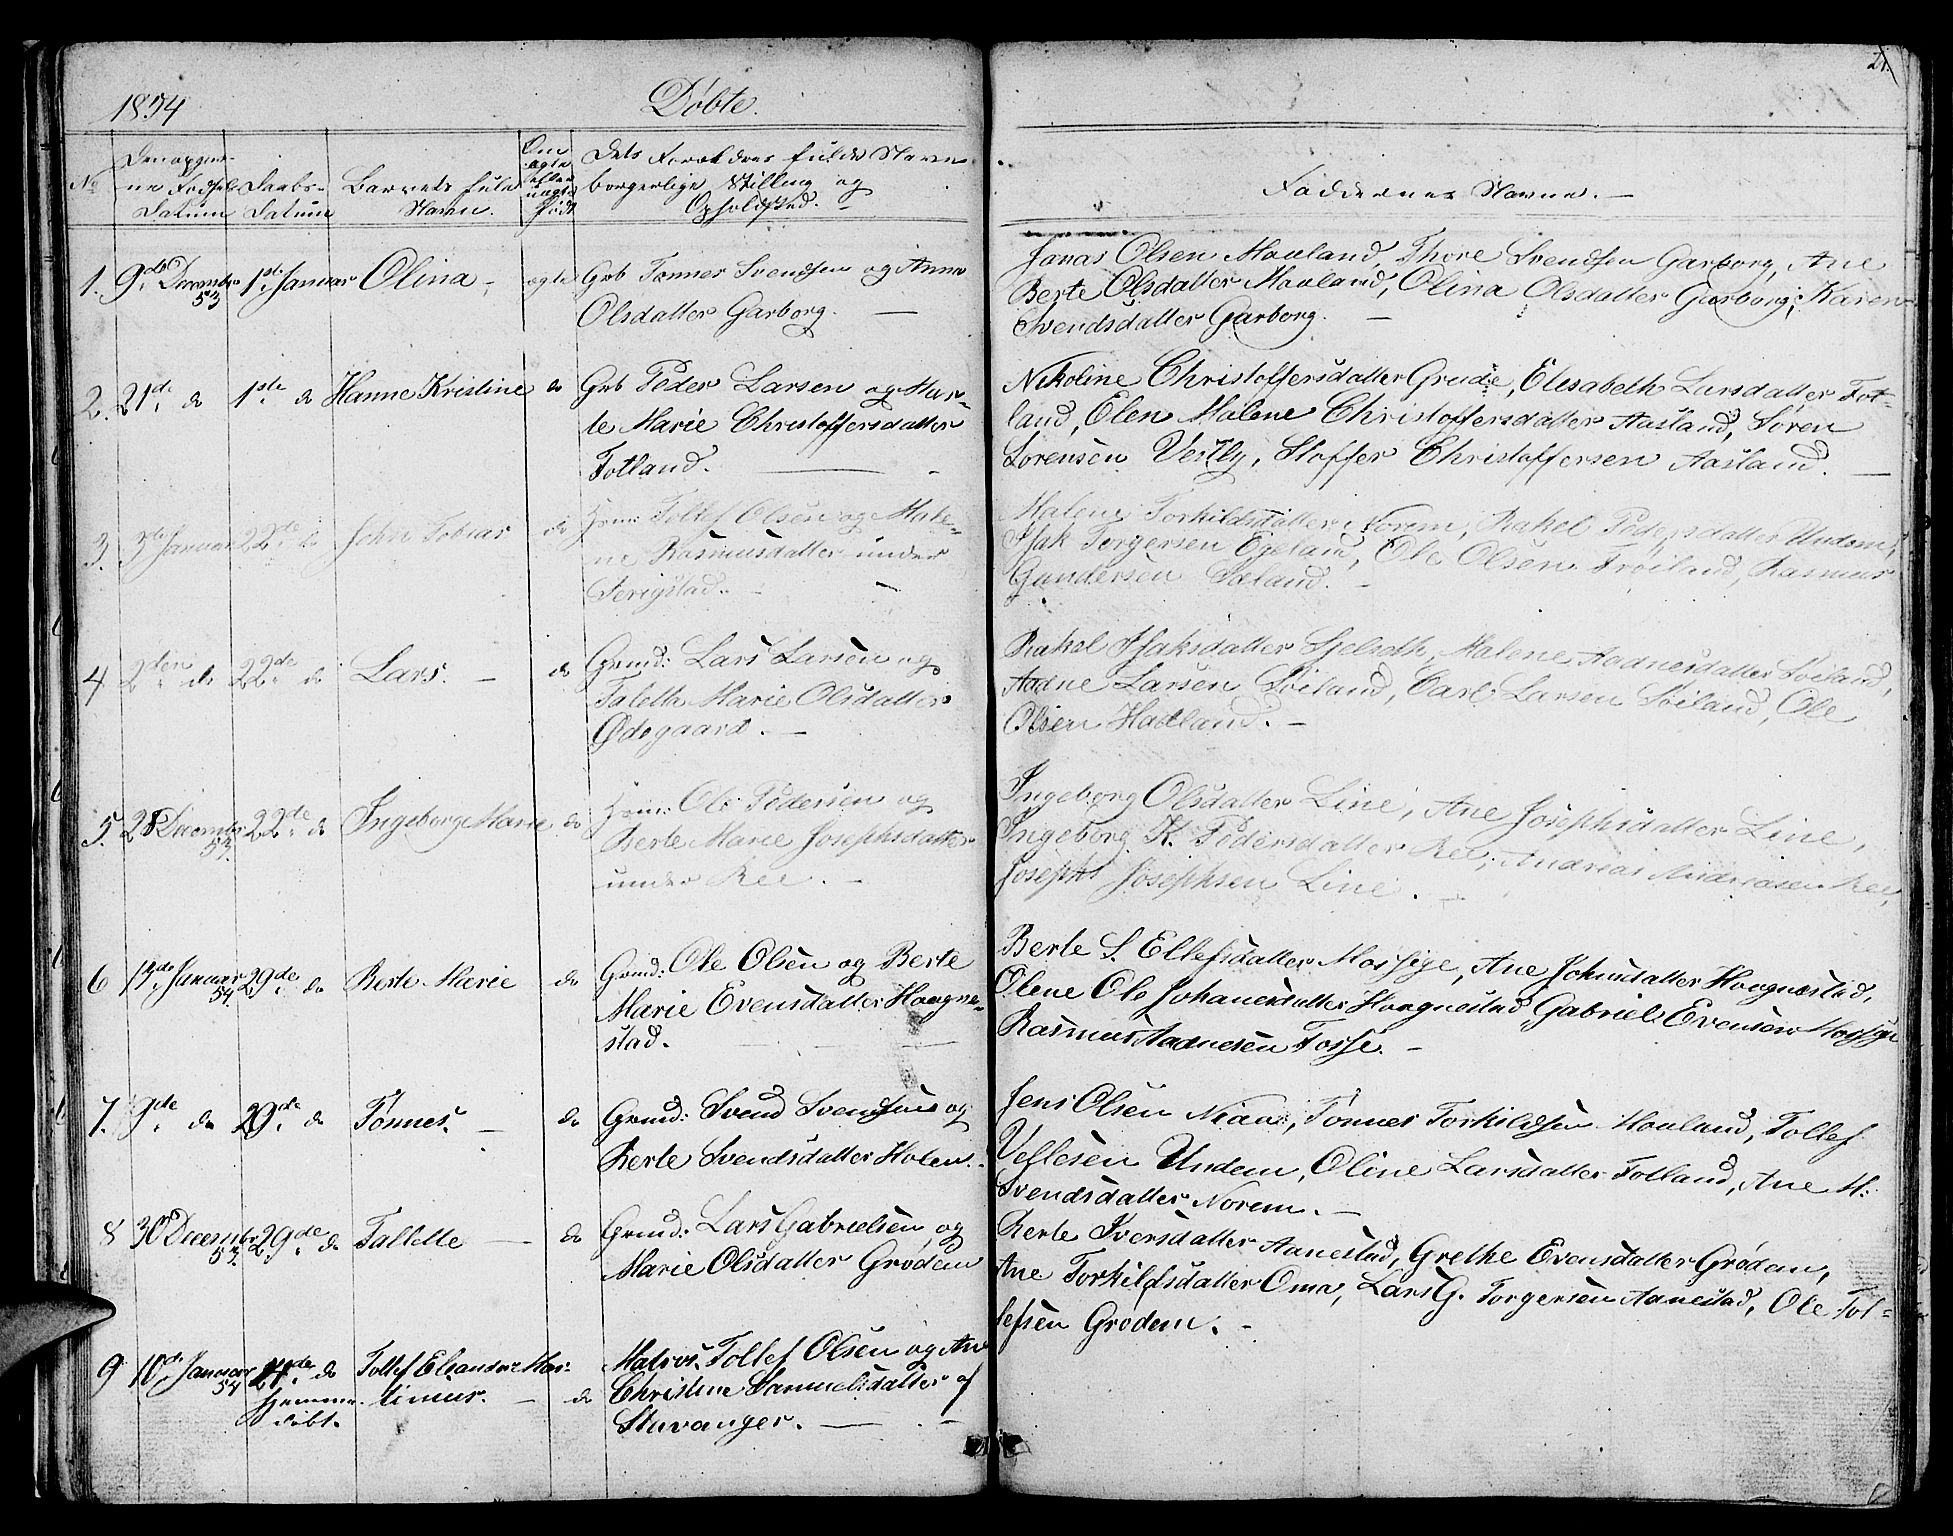 21.
1854 Døbte.
No
Den opgiv-
ne Fødsels
Datum
Daabs-
Datum
Barnets fulde
Navn.
Om
ægte
eller
uægte
født
Dets Forældres fulde Navne
borgerlige Stilling og
Opholdsted. -
Faddernes Navne. -
1. 9de Decembr 53 1ste Januar Olina - ægte Grb Tønnes Svendsen og Anna
Olsdatter Garborg. -
Jonas Olsen Mauland, Thore Svendsen Garborg, Ane
Berte Olsdatter Mauland, Olina Olsdatter Garborg, Karen
Svendsdatter Garborg. -
2. 21de do 1ste do Hanne Kristine do Grb Peder Larsen og Mar-
te Marie Christoffersdatter
Totland. -
Nikoline Christoffersdatter Grude, Elesabeth Larsdatter Tot-
land, Elen Malene Christoffersdatter Aasland, Søren
Sørensen Vestly, Stoffer Christoffersen Aasland. -
3. 3de Januar 22de do John Tobias do Huus: Tollef Olsen og Male-
ne Rasmusdatter under
Serigstad. -
Malene Torkildsdatter Norem, Rakel Pedersdatter Undem,
Isak Torgersen Egeland, Ole Olsen Frøiland, Rasmus
Gundersen Søland. -
4 2den do 22de do Lars. - do Grmd: Lars Larsen og
Taletha Marie Olsdatter
Ødegaard. -
Rakel Isaksdatter Sjelseth, Malene Aadnesdatter Søiland,
Aadne Larsen Søiland, Carl Larsen Søiland, Ole
Olsen Hatland. -
5. 28 Decembr 53. 22de do Ingeborg Marie do Huus: Ole Pedersen og
Berte Marie Josephsdatter
under Ree. -
Ingeborg Olsdatter Line, Ane Josephsdatter Line,
Ingeborg K. Pedersdatter Ree, Andreas Andreasen Ree,
Joseph Josephsen Line. -
6 17de Januar 54. 29de do Berte Marie do Grmd: Ole Olsen og Berte
Marie Evensdatter Haagne-
stad.
Berte S. Ellefsdatter Mossige, Ane Johnsdatter Haagnestad,
Olene Ole Johanesdatter Haagnestad, Gabriel Evensen Mossige
Rasmus Aadnesen Fosse. -
7. 9de do 29de do Tønnes. - do Grmd: Svend Svendsen og
Berte Svendsdatter Holen.
Jens Olsen Niaa, Tønnes Torkildsen Hauland, Tollef
Veglesen Undem, Oline Larsdatter Totland, Ane M.
Svendsdatter Norem. -
8 30 Decembr 53. 29de do Tallette - do Grmd: Lars Gabrielsen og
Marie Olsdatter Grødem
Berte Iversdatter Aanestad, Grethe Evensdatter Grødem,
Ane Torkildsdatter Oma, Lars G. Torgersen Aanestad, Ole Tol-
lefsen Grødem. -
9 10de Januar 54 29de do
Hjemme
døbt.
Tollef Eleander Mar-
tinius. - do
Matros Tollef Olsen og Ane
Christine Samuelsdatter af
Stavanger. -